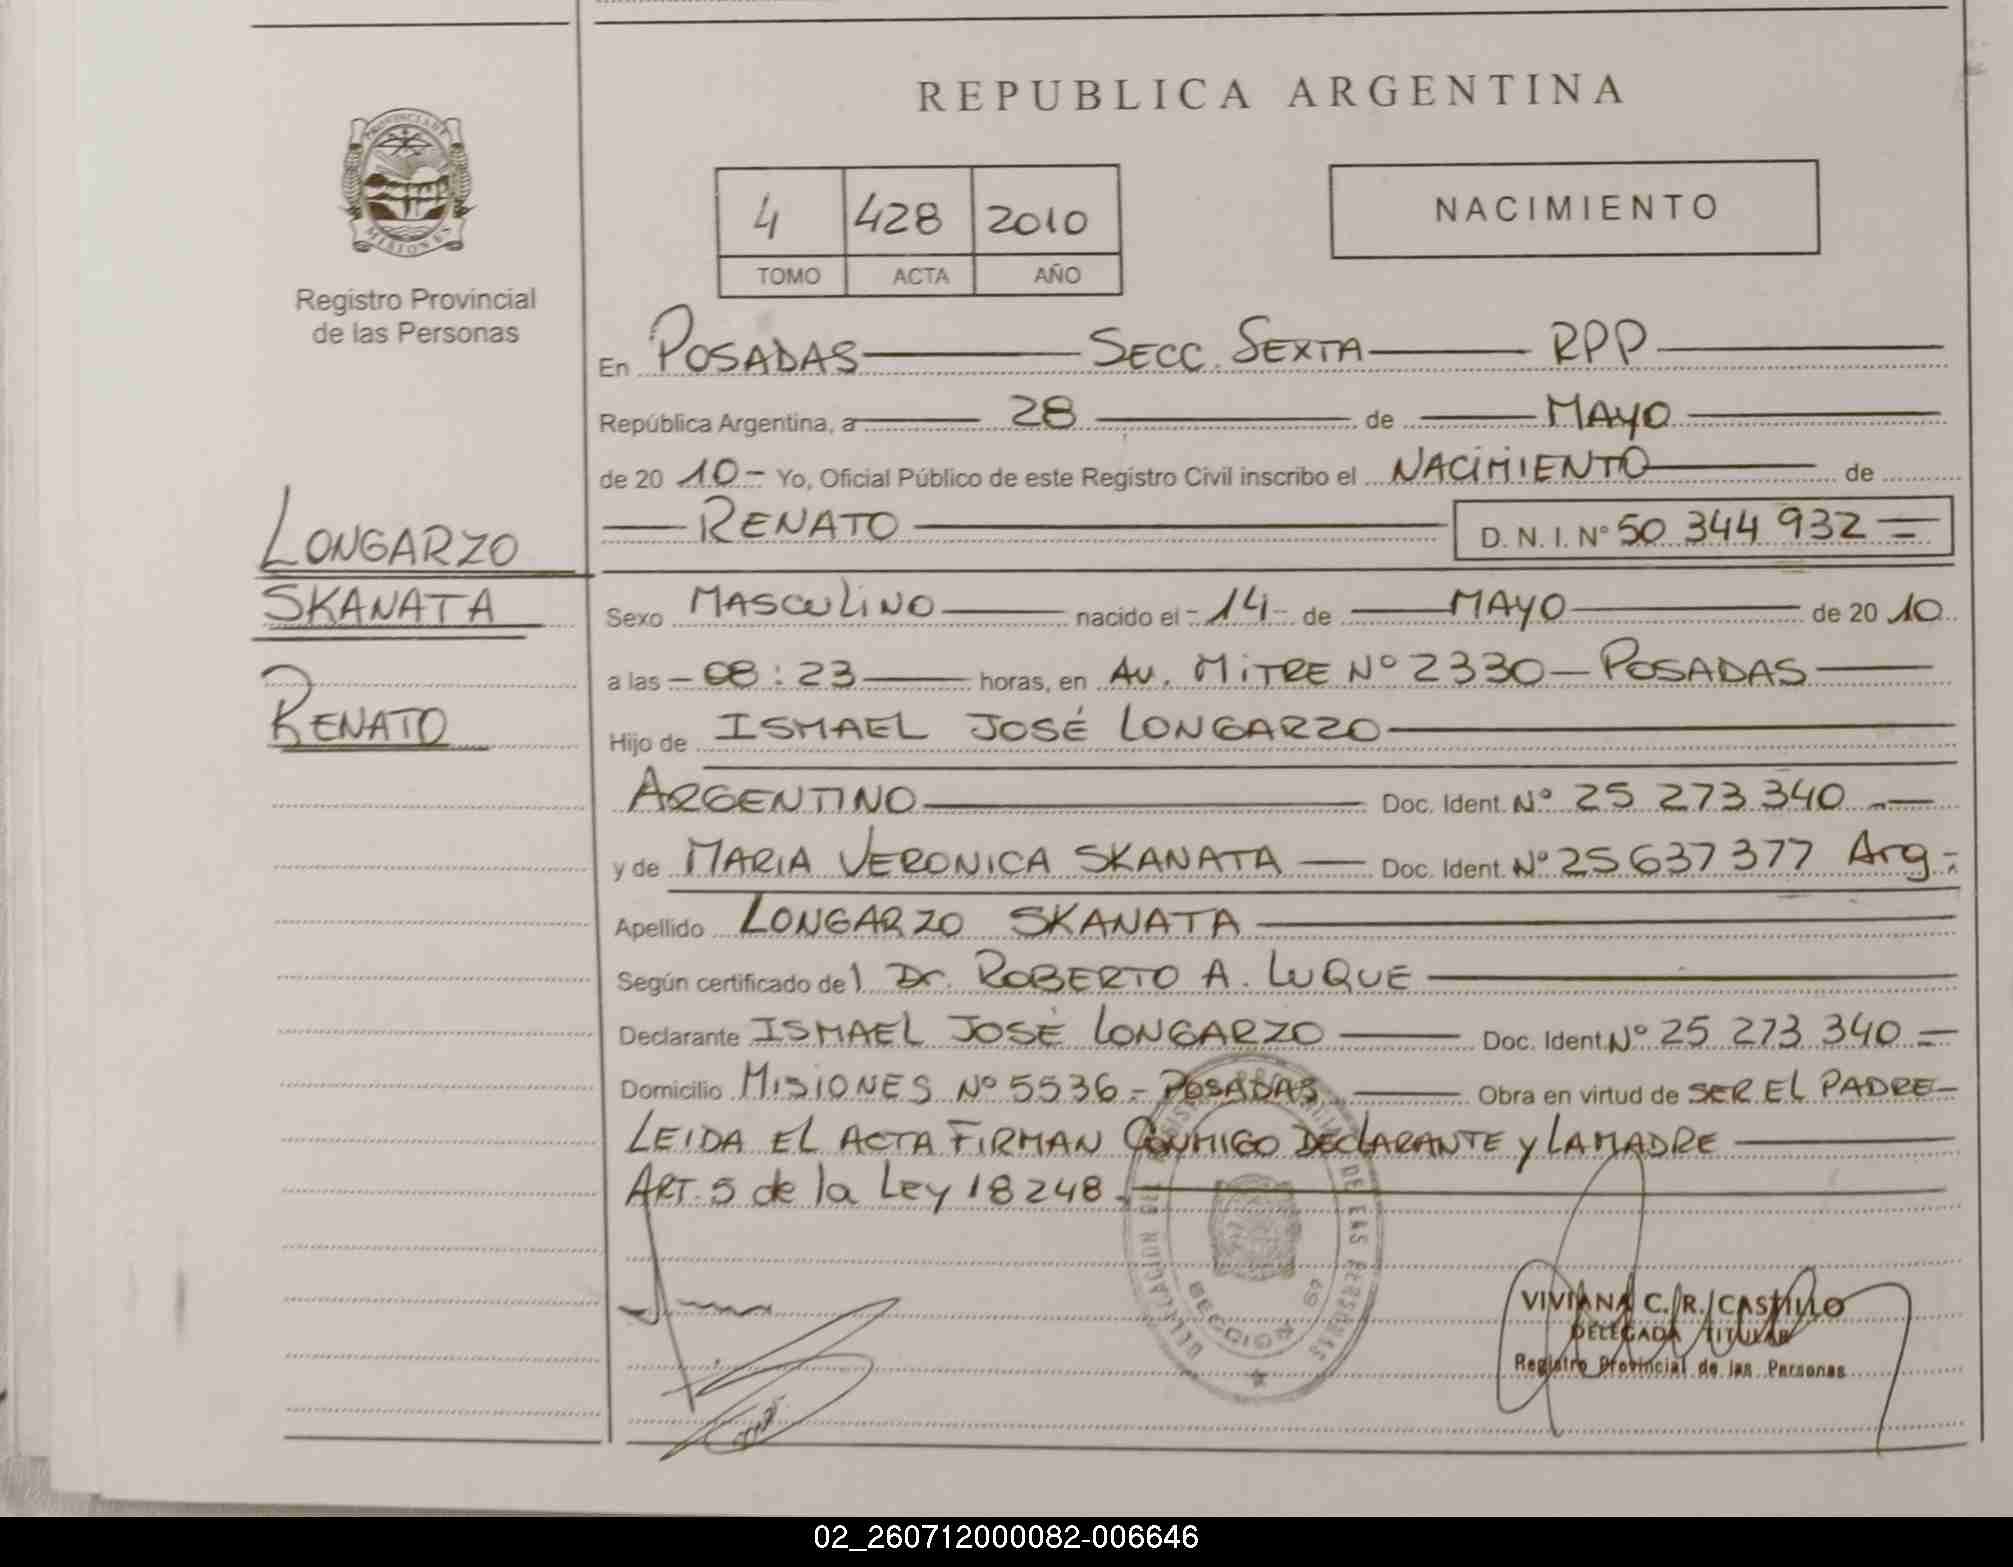 REPUBLICA ARGENTINA
PROVINCIA DE
MISIONES
Registro Provincial
de las Personas
4 428 2010
TOMO ACTA AÑO
NACIMIENTO
En POSADAS SECC. SEXTA RPP
República Argentina, a 28 de MAYO
de 20 10- Yo, Oficial Público de este Registro Civil inscribo el NACIMIENTO de
RENATO D. N. I. Nº 50 344 932
LONGARZO
SKANATA
RENATO
Sexo MASCULINO nacido el 14 de MAYO de 20 10
a las 08:23 horas, en AV. MITRE Nº 2330 - POSADAS
Hijo de ISMAEL JOSÉ LONGARZO
ARGENTINO Doc. Ident. Nº 25 273 340
y de MARIA VERONICA SKANATA Doc. Ident. Nº 25 637 377 Arg.
Apellido LONGARZO SKANATA
Según certificado del Dr. ROBERTO A. LUQUE
Declarante ISMAEL JOSÉ LONGARZO Doc. Ident Nº 25 273 340
Domicilio MISIONES Nº 5536 - POSADAS Obra en virtud de SER EL PADRE
LEIDA EL ACTA FIRMAN CONMIGO DECLARANTE y LA MADRE
ART. 5 de la Ley 18248.
DELEGACION DEL REGISTRO PROVINCIAL DE LAS PERSONAS
SECCION 6ª
VIVIANA C. R. CASTILLO
DELEGADA TITULAR
Registro Provincial de las Personas
02_260712000082-006646